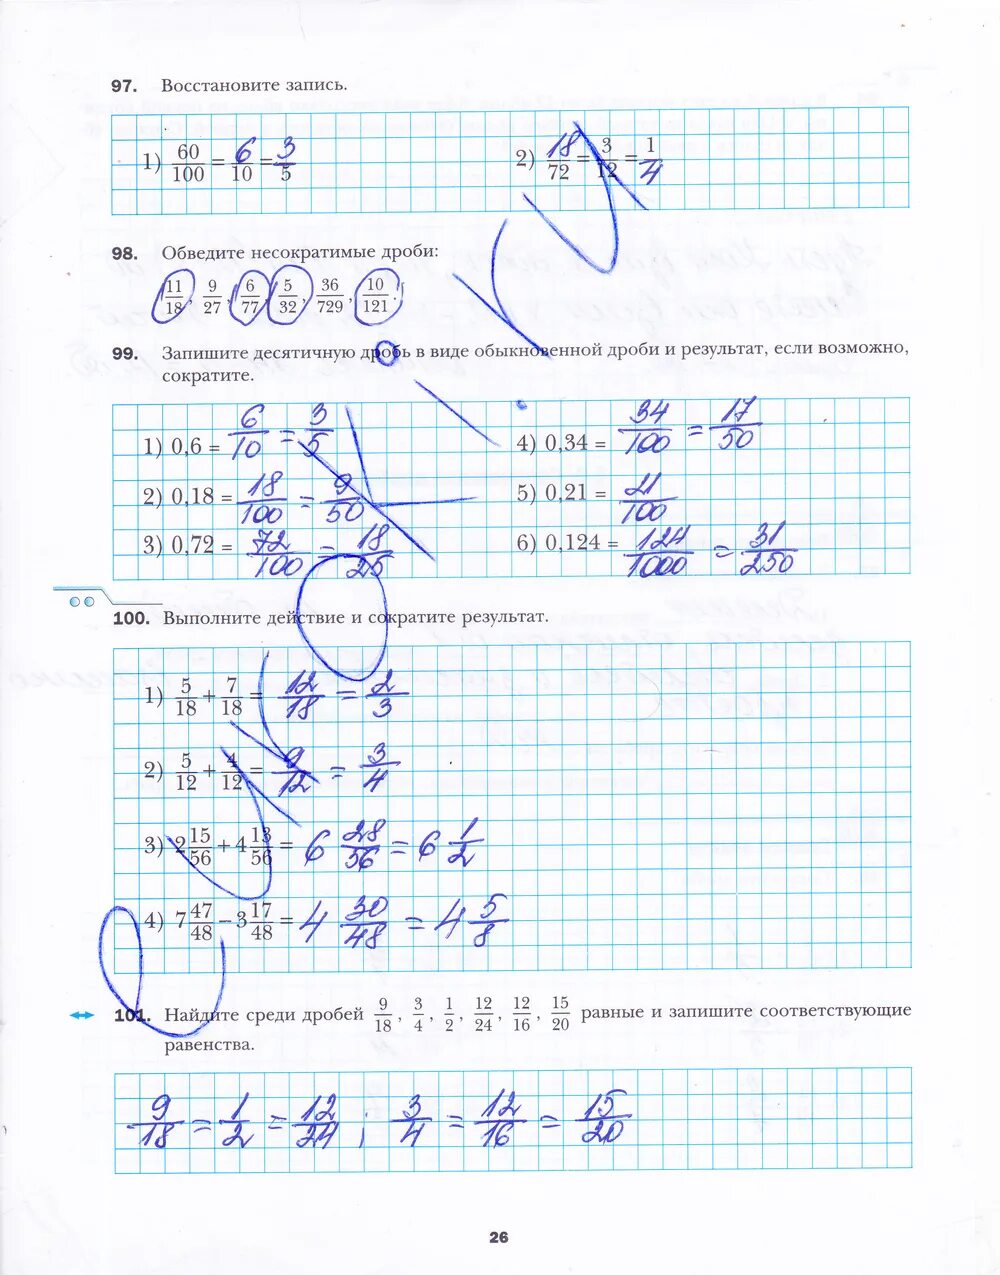 97. Восстановите запись.
1) 60/100 = 6/10 = 3/5
2) 18/72 = 3/12 = 1/4
98. Обведите несократимые дроби:
11/18, 9/27, 6/77, 5/32, 36/729, 10/121.
99. Запишите десятичную дробь в виде обыкновенной дроби и результат, если возможно,
сократите.
1) 0,6 = 6/10 = 3/5
4) 0,34 = 34/100 = 17/50
2) 0,18 = 18/100 = 9/50
5) 0,21 = 21/100
3) 0,72 = 72/100 = 18/25
6) 0,124 = 124/1000 = 31/250
100. Выполните действие и сократите результат.
1) 5/18 + 7/18 = 12/18 = 2/3
2) 5/12 + 4/12 = 9/12 = 3/4
3) 2 15/56 + 4 13/56 = 6 28/56 = 6 1/2
4) 7 47/48 − 3 17/48 = 4 30/48 = 4 5/8
101. Найдите среди дробей 9/18, 3/4, 1/2, 12/24, 12/16, 15/20 равные и запишите соответствующие
равенства.
9/18 = 1/2 = 12/24 ; 3/4 = 12/16 = 15/20
26